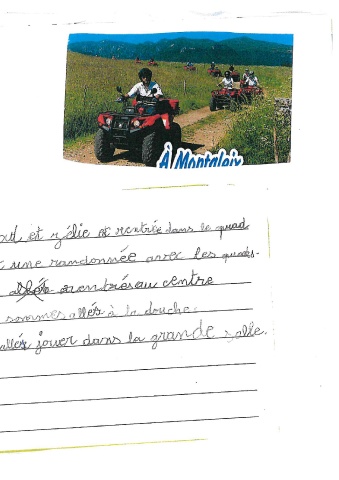 À Montaloix
et zélie et rentrée dans le quad
une randonnée avec les quads.
rentrés au centre
sommes allés à la douche.
allés jouer dans la grande salle.